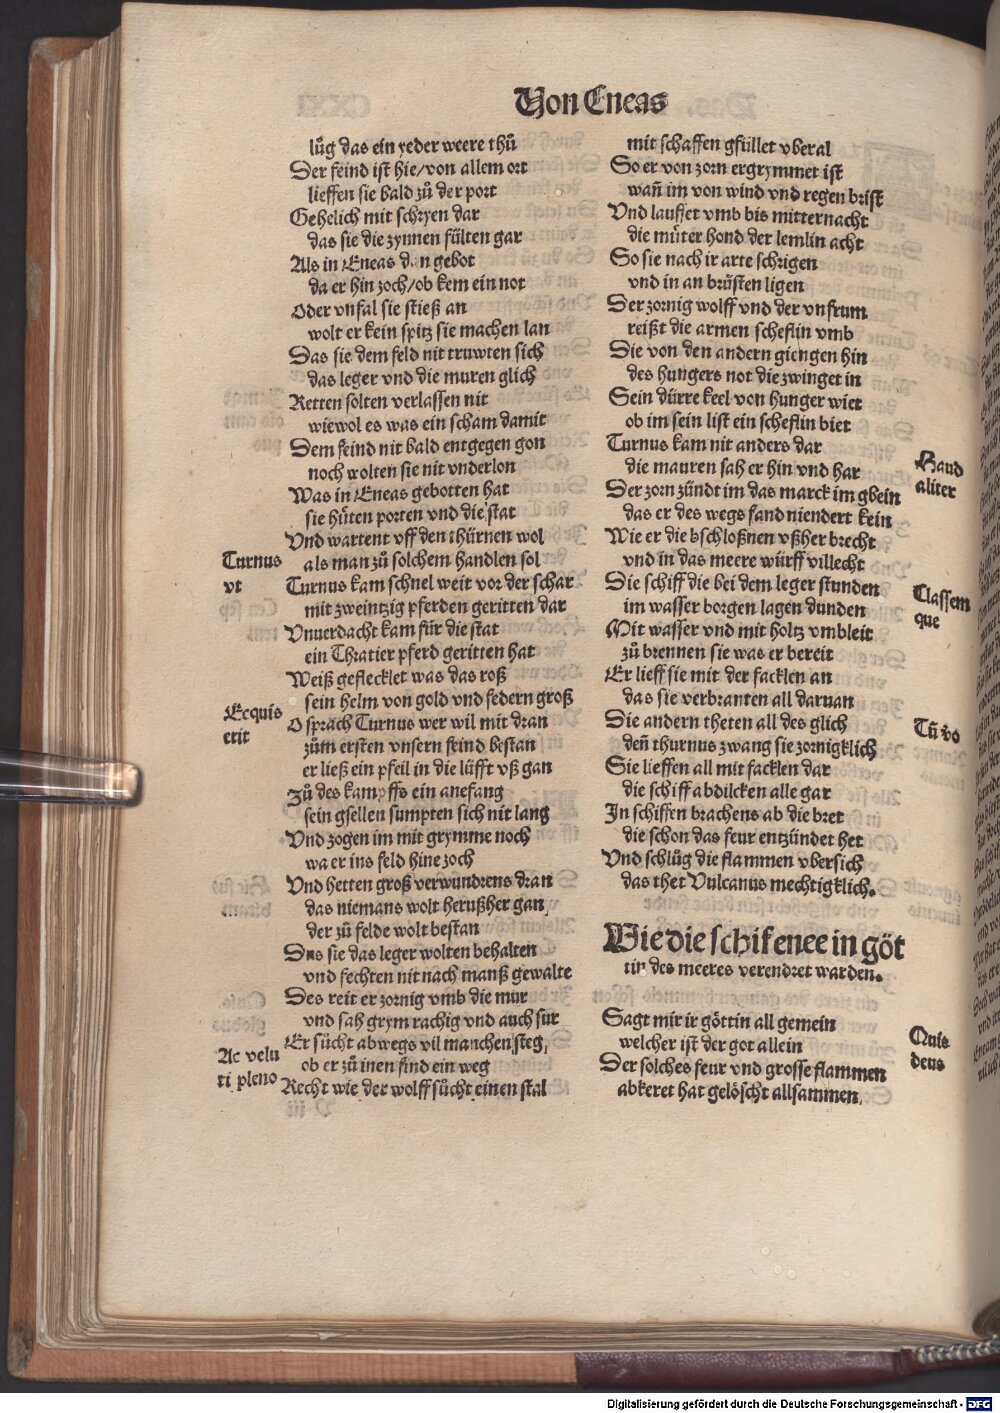 Von Eneas
lůg das ein yeder weere thů
Der feind ist hie/von allem ort
lieffen sie bald zů der port
Gehelich mit schryen dar
das sie die zynnen fülten gar
Als in Eneas dan gebot
da er hin zoch/ob kem ein not
Oder vnfal sie stieß an
wolt er kein spitz sie machen lan
Das sie dem feld nit truwten sich
das leger vnd die muren glich
Retten solten verlassen nit
wiewol es was ein scham damit
Dem feind nit bald entgegen gon
noch wolten sie nit vnderlon
Was in Eneas gebotten hat
sie hůten porten vnd die stat
Vnd wartent vff den thürnen wol
als man zů solchem handlen sol
Turnus vt
Turnus kam schnel weit vor der schar
mit zweintzig pferden geritten dar
Vnuerdacht kam für die stat
ein Thratier pferd geritten hat
Weiß geflecklet was das roß
sein helm von gold vnd federn groß
Ecquis erit
O sprach Turnus wer wil mit dran
zům ersten vnsern feind bestan
er ließ ein pfeil in die lüfft vß gan
Zů des kampffs ein anefang
sein gsellen sumpten sich nit lang
Vnd zogen im mit grymme noch
wa er ins feld hine zoch
Vnd hetten groß verwundrens dran
das niemans wolt herußher gan
der zů felde wolt bestan
Das sie das leger wolten behalten
vnd fechten nit nach manß gewalte
Des reit er zornig vmb die mur
vnd sah grym rachig vnd auch sur
Er sůcht abwegs vil manchen steg,
ob er zů inen find ein weg
Ac velu ti pleno
Recht wie der wolff sůcht einen stal
mit schaffen gfüllet vberal
So er von zorn ergrymmet ist
wañ im von wind vnd regen brist
Vnd lauffet vmb bis mitternacht
die můter hond der lemlin acht
So sie nach ir arte schrigen
vnd in an brüsten ligen
Der zornig wolff vnd der vnfrum
reißt die armen scheflin vmb
Die von den andern giengen hin
des hungers not die zwinget in
Sein dürre keel von hunger wiet
ob im sein list ein scheflin biet
Turnus kam nit anders dar
die mauren sah er hin vnd har
Haud aliter
Der zorn zündt im das marck im gbein
das er des wegs fand niendert kein
Wie er die bschloßnen vßher brecht
vnd in das meere würff villecht
Classem que
Die schiff die bei dem leger stunden
im wasser borgen lagen dunden
Mit wasser vnd mit holtz vmbleit
zů brennen sie was er bereit
Er lieff sie mit der facklen an
das sie verbranten all daruan
Tũ vo
Die andern theten all des glich
deñ thurnus zwang sie zornigklich
Sie lieffen all mit facklen dar
die schiff abdilcken alle gar
In schiffen brachens ab die bret
die schon das feur entzündet het
Vnd schlůg die flammen vbersich
das thet Vulcanus mechtigklich.
Wie die schif enee in göt
tin des meeres verendret warden.
Sagt mir ir göttin all gemein
welcher ist der got allein
Quis deus
Der solches feur vnd grosse flammen
abkeret hat gelöscht allsammen,
Digitalisierung gefördert durch die Deutsche Forschungsgemeinschaft - DFG